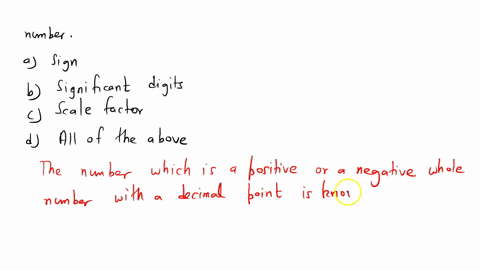 number.
a) Sign
b) Significant digits
c) Scale factor
d) All of the above
The number which is a positive or a negative whole
number with a decimal point is knoc